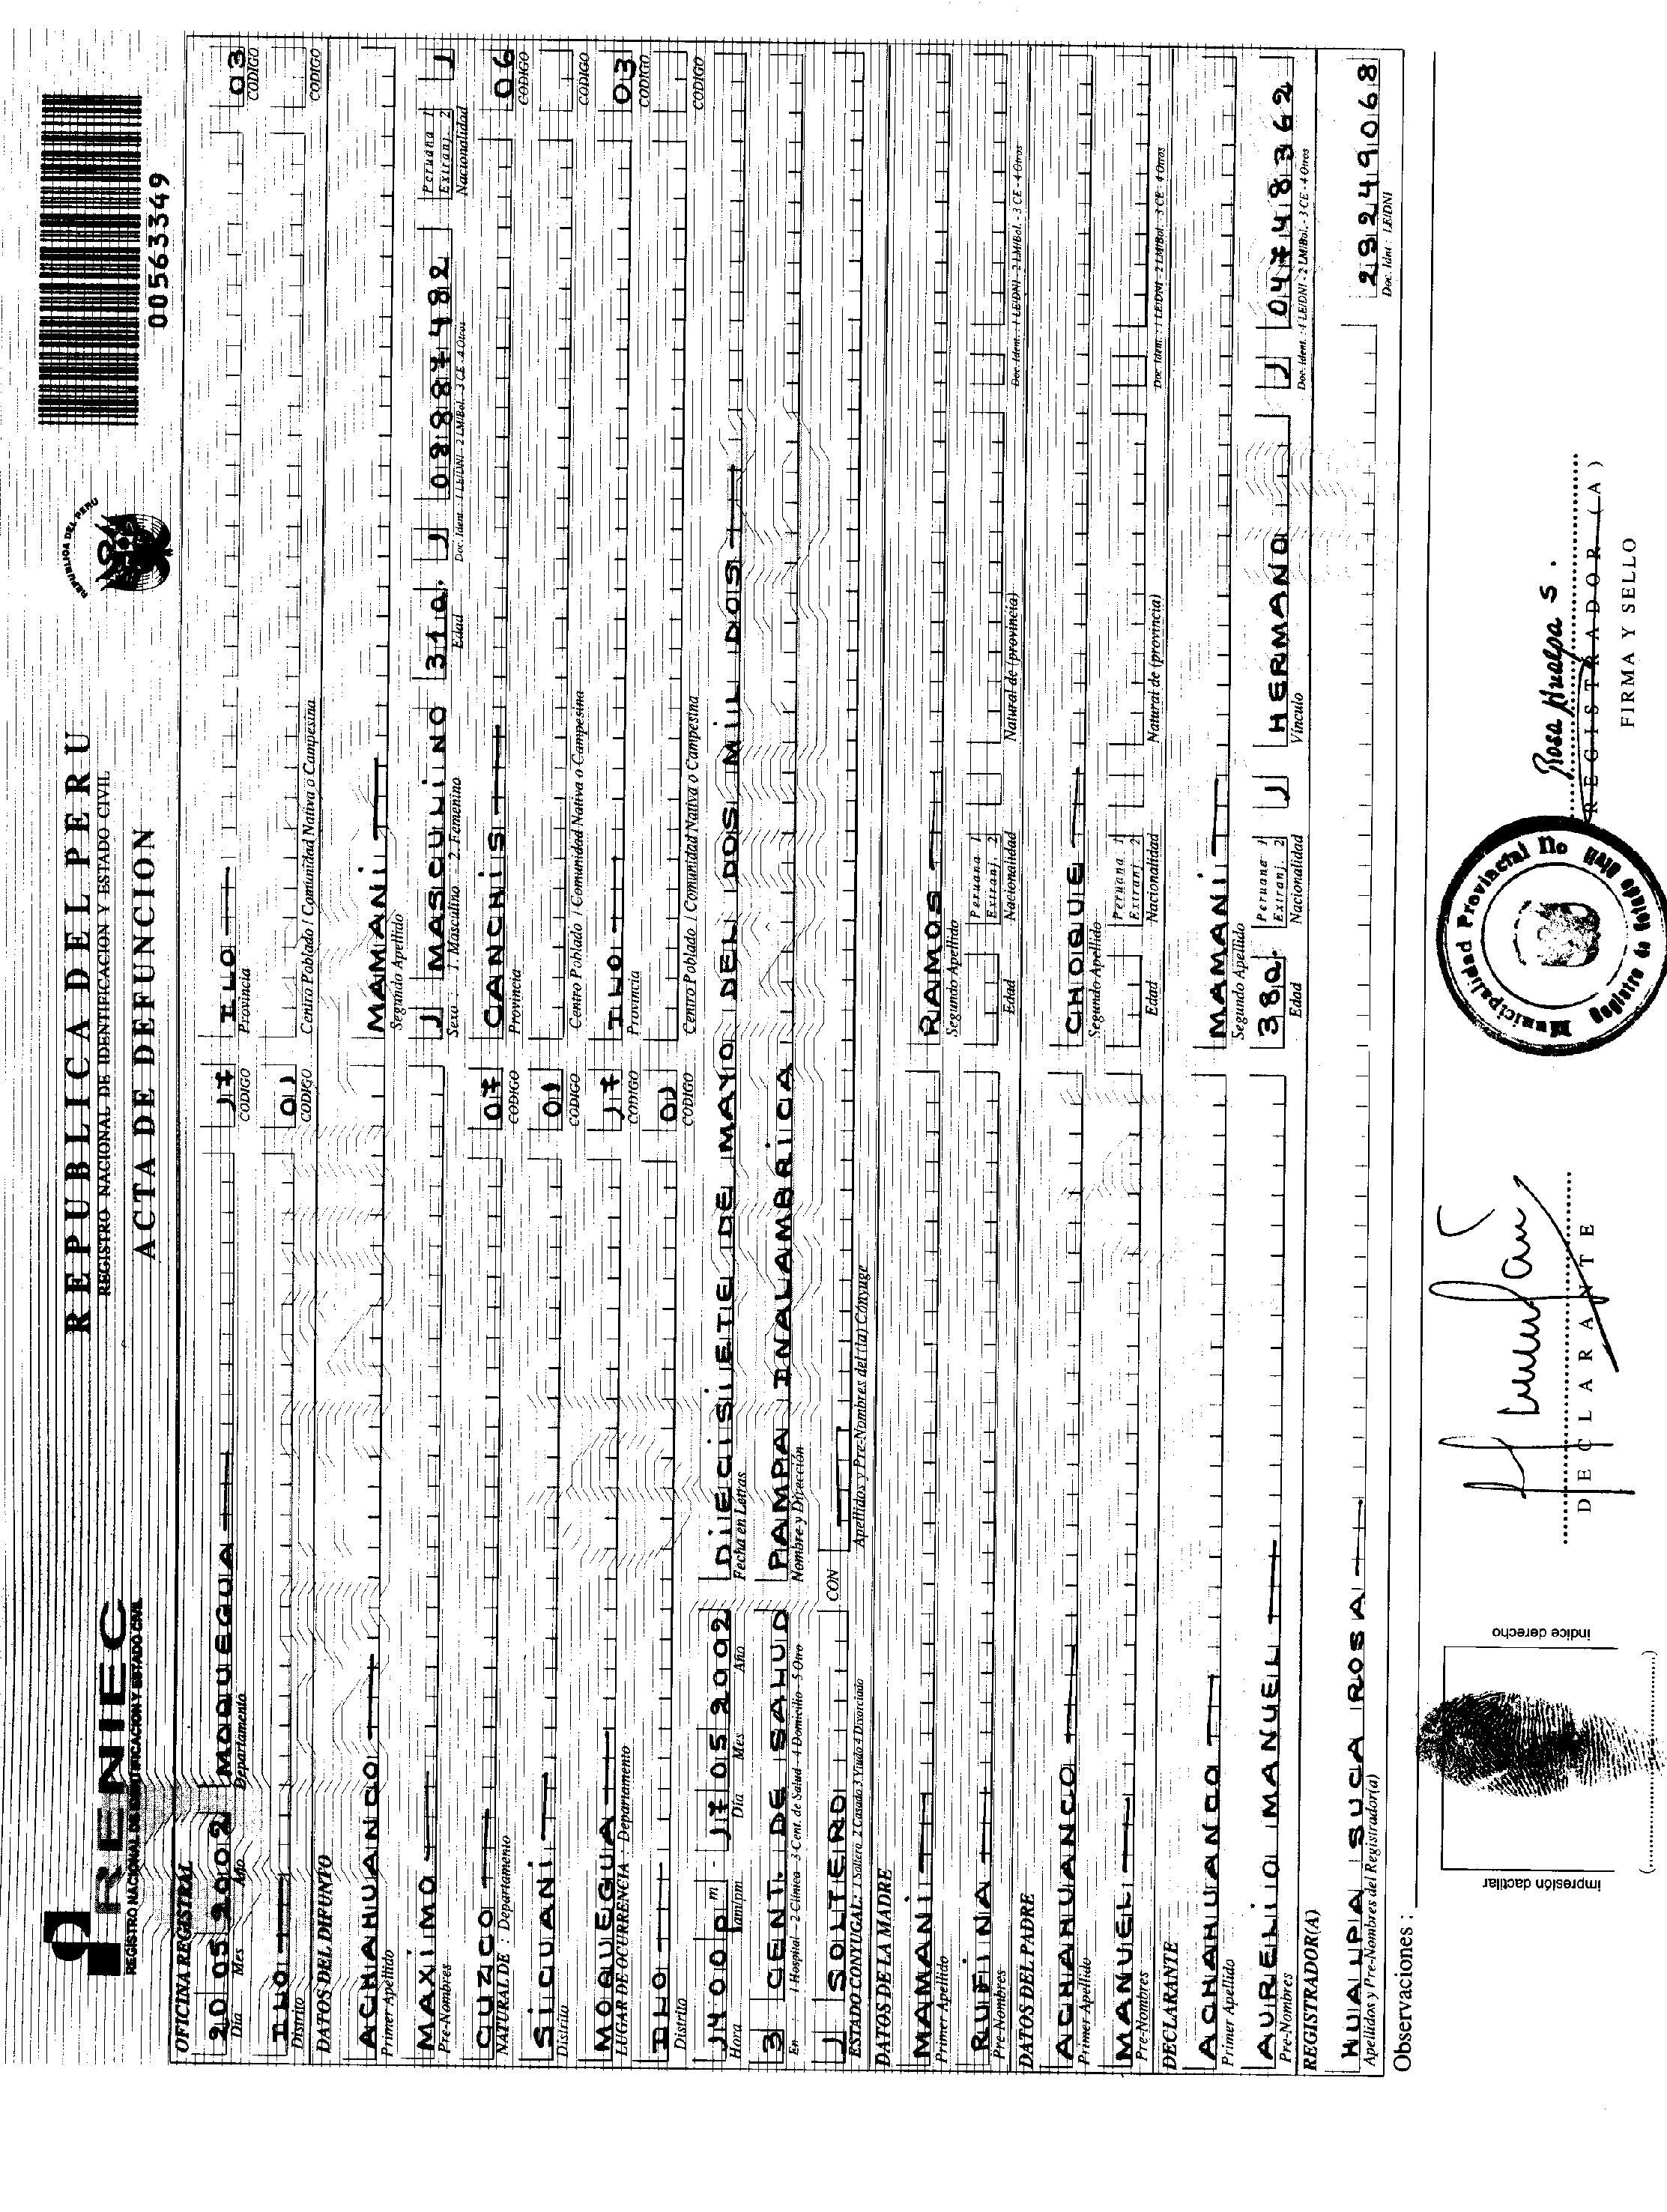 RENIEC
REGISTRO NACIONAL DE IDENTIFICACION Y ESTADO CIVIL
REPUBLICA DEL PERU
REGISTRO NACIONAL DE IDENTIFICACION Y ESTADO CIVIL
ACTA DE DEFUNCION
REPUBLICA DEL PERU
00563349
OFICINA REGISTRAL
20 05 2002 MOQUEGUA 17 ILO 03
Día Mes Año Departamento CODIGO Provincia CODIGO
ILO 01
Distrito CODIGO Centro Poblado / Comunidad Nativa o Campesina CODIGO
DATOS DEL DIFUNTO
ACHAHUANCO MAMANI
Primer Apellido Segundo Apellido
MAXIMO 1 MASCULINO 31a. 1 Peruana 1 Extranj. 2 1
Pre-Nombres Sexo : 1. Masculino 2. Femenino Edad Doc. Ident. 1 LE/DNI - 2 LM/Bol. 3 CE - 4 Otros Nacionalidad
CUZCO 07 CANCHIS 06
NATURAL DE : Departamento CODIGO Provincia CODIGO
SICUANI 01
Distrito CODIGO Centro Poblado / Comunidad Nativa o Campesina CODIGO
MOQUEGUA 17 ILO 03
LUGAR DE OCURRENCIA : Departamento CODIGO Provincia CODIGO
ILO 01
Distrito CODIGO Centro Poblado / Comunidad Nativa o Campesina CODIGO
1400 pm 17 05 2002 DIECISIETE DE MAYO DEL DOS MIL DOS
Hora am/pm Día Mes Año Fecha en Letras
3 CENT. DE SALUD PAMPA INALAMBRICA
En : 1 Hospital - 2 Clínica - 3 Cent. de Salud - 4 Domicilio - 5 Otro Nombre y Dirección
1 SOLTERO CON
ESTADO CONYUGAL: 1 Soltero 2 Casado 3 Viudo 4 Divorciado Apellidos y Pre-Nombres del (la) Cónyuge
DATOS DE LA MADRE
MAMANI RAMOS
Primer Apellido Segundo Apellido
RUFINA Peruana 1 Extranj. 2
Pre-Nombres Edad Nacionalidad Natural de (provincia) Doc. Ident. : 1 LE/DNI - 2 LM/Bol. - 3 CE - 4 Otros
DATOS DEL PADRE
ACHAHUANCO CHOQUE
Primer Apellido Segundo Apellido
MANUEL Peruana 1 Extranj. 2
Pre-Nombres Edad Nacionalidad Natural de (provincia) Doc. Ident. : 1 LE/DNI - 2 LM/Bol. 3 CE - 4 Otros
DECLARANTE
ACHAHUANCO MAMANI
Primer Apellido Segundo Apellido
AURELIO MANUEL 38a. Peruana 1 Extranj. 2 1 HERMANO 1 04748362
Pre-Nombres Edad Nacionalidad Vínculo Doc. Ident. : 1 LE/DNI - 2 LM/Bol. - 3 CE - 4 Otros
REGISTRADOR(A)
HUALPA SUCA ROSA
Apellidos y Pre-Nombres del Registrador(a) Doc. Idnt : LE/DNI
Observaciones :
impresión dactilar
indice derecho
DECLARANTE
Municipalidad Provincial Ilo
Rosa Hualpa S.
REGISTRADOR (A)
FIRMA Y SELLO